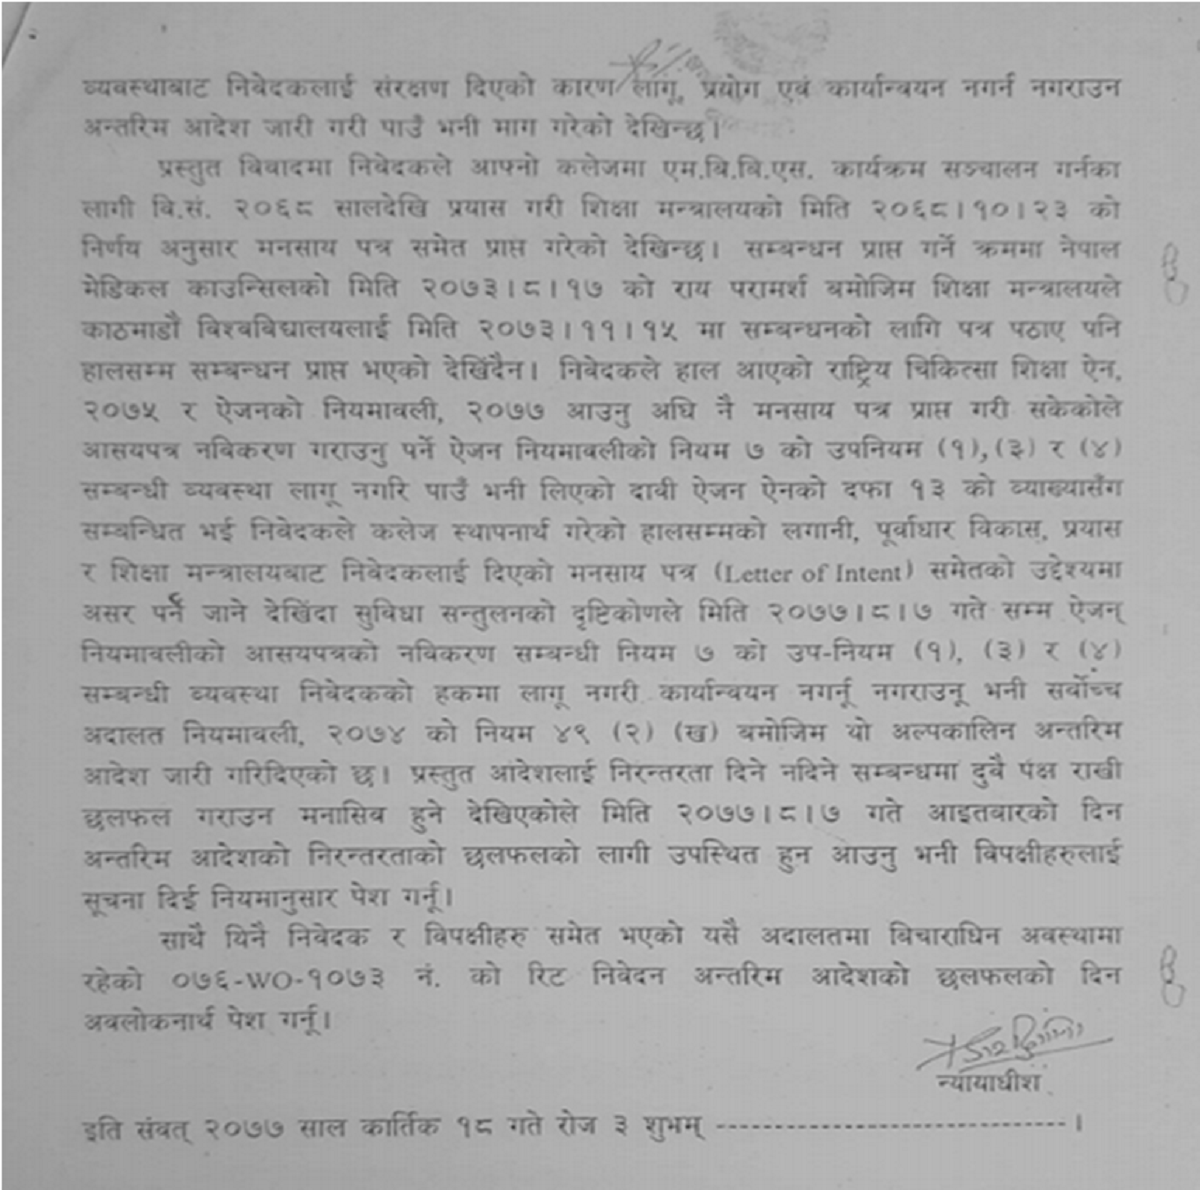 व्यवस्थाबाट निवेदकलाई संरक्षण दिएको कारण लागू, प्रयोग एवं कार्यान्वयन नगर्न नगराउन
अन्तरिम आदेश जारी गरी पाउँ भनी माग गरेको देखिन्छ।
प्रस्तुत विवादमा निवेदकले आफ्नो कलेजमा एम.बि.बि.एस. कार्यक्रम सञ्चालन गर्नका
लागी बि.सं. २०६८ सालदेखि प्रयास गरी शिक्षा मन्त्रालयको मिति २०६८।१०।२३ को
निर्णय अनुसार मनसाय पत्र समेत प्राप्त गरेको देखिन्छ। सम्बन्धन प्राप्त गर्ने क्रममा नेपाल
मेडिकल काउन्सिलको मिति २०७३।८।१७ को राय परामर्श बमोजिम शिक्षा मन्त्रालयले
काठमाडौं विश्वबिद्यालयलाई मिति २०७३।११।१५ मा सम्बन्धनको लागि पत्र पठाए पनि
हालसम्म सम्बन्धन प्राप्त भएको देखिंदैन। निवेदकले हाल आएको राष्ट्रिय चिकित्सा शिक्षा ऐन,
२०७५ र ऐजनको नियमावली, २०७७ आउनु अघि नै मनसाय पत्र प्राप्त गरी सकेकोले
आसयपत्र नबिकरण गराउनु पर्ने ऐजन नियमावलीको नियम ७ को उपनियम (१),(३) र (४)
सम्बन्धी व्यवस्था लागू नगरि पाउँ भनी लिएको दावी ऐजन ऐनको दफा १३ को व्याख्यासँग
सम्बन्धित भई निवेदकले कलेज स्थापनार्थ गरेको हालसम्मको लगानी, पूर्वाधार विकास, प्रयास
र शिक्षा मन्त्रालयबाट निवेदकलाई दिएको मनसाय पत्र (Letter of Intent) समेतको उद्देश्यमा
असर पर्ने जाने देखिंदा सुविधा सन्तुलनको दृष्टिकोणले मिति २०७७।८।७ गते सम्म ऐजन्
नियमावलीको आसयपत्रको नबिकरण सम्बन्धी नियम ७ को उप-नियम (१), (३) र (४)
सम्बन्धी व्यवस्था निवेदकको हकमा लागू नगरी कार्यान्वयन नगर्नू नगराउनू भनी सर्वोच्च
अदालत नियमावली, २०७४ को नियम ४९ (२) (ख) बमोजिम यो अल्पकालिन अन्तरिम
आदेश जारी गरिदिएको छ। प्रस्तुत आदेशलाई निरन्तरता दिने नदिने सम्बन्धमा दुबै पक्ष राखी
छलफल गराउन मनासिव हुने देखिएकोले मिति २०७७।८।७ गते आइतबारको दिन
अन्तरिम आदेशको निरन्तरताको छलफलको लागी उपस्थित हुन आउनु भनी बिपक्षीहरुलाई
सूचना दिई नियमानुसार पेश गर्नू।
साथै यिनै निवेदक र बिपक्षीहरु समेत भएको यसै अदालतमा बिचाराधिन अवस्थामा
रहेको ०७६-WO-१०७३ नं. को रिट निवेदन अन्तरिम आदेशको छलफलको दिन
अवलोकनार्थ पेश गर्नू।
न्यायाधीश
इति संवत् २०७७ साल कार्तिक १८ गते रोज ३ शुभम् ------------------------------।